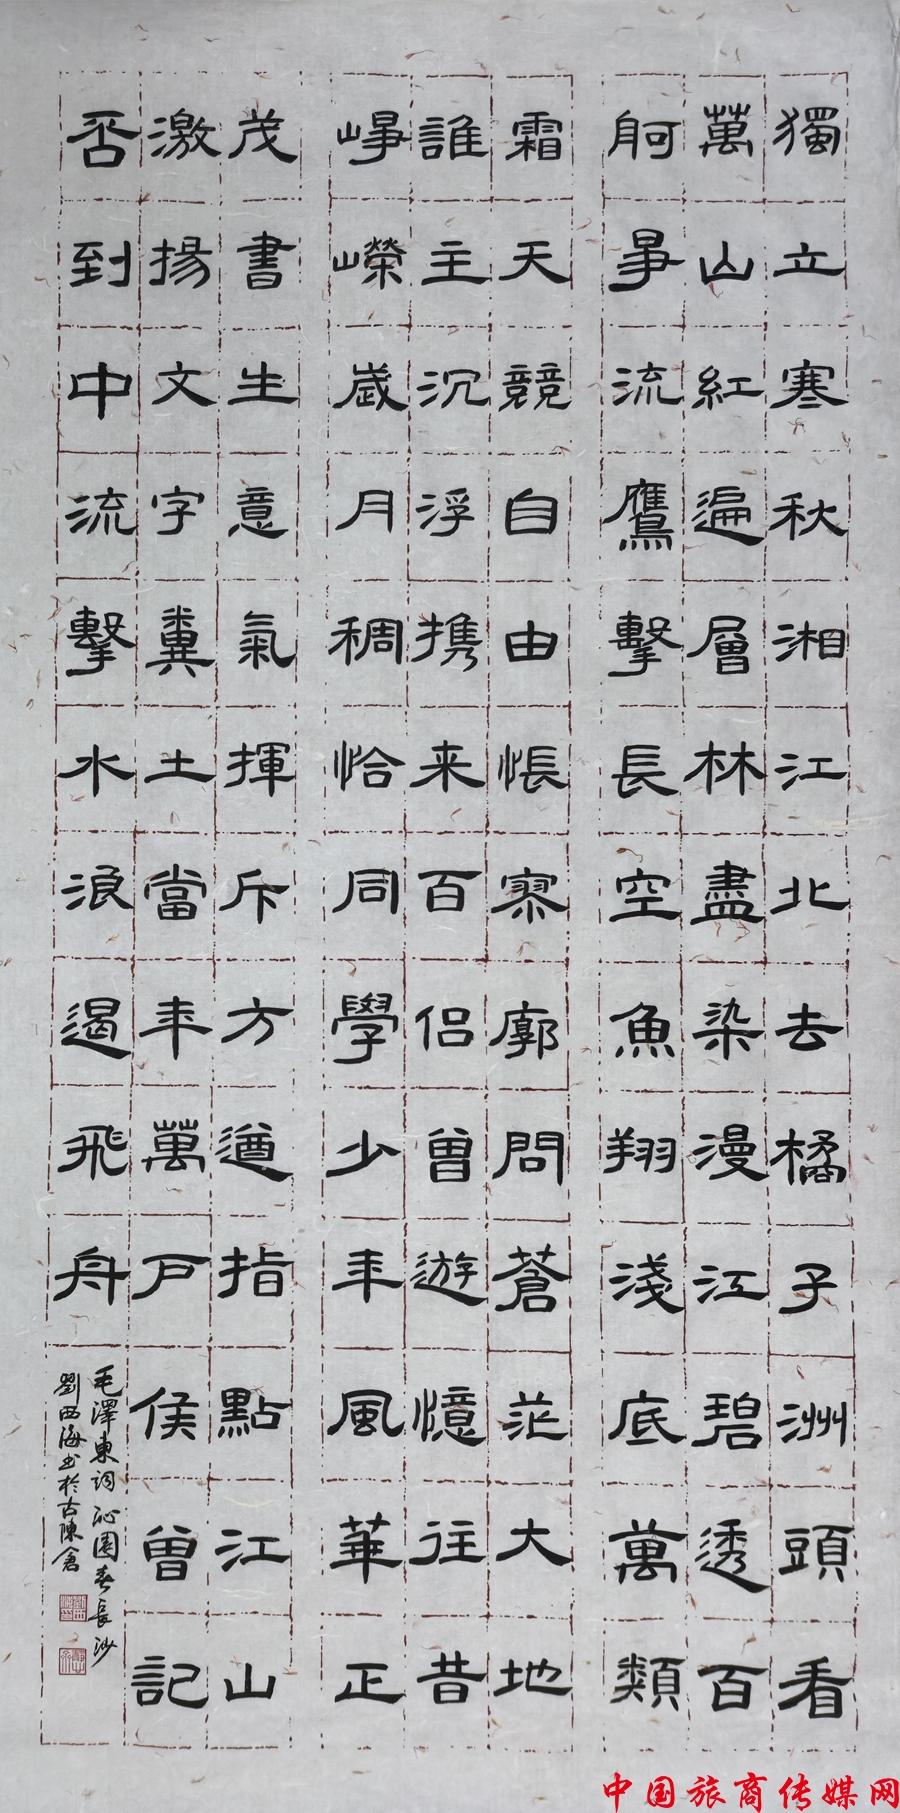 獨立寒秋湘江北去橘子洲頭看
萬山紅遍層林盡染漫江碧透百
舸爭流鷹擊長空魚翔淺底萬類
霜天競自由悵寥廓問蒼茫大地
誰主沉浮携来百侣曾遊憶往昔
崢嶸歲月稠恰同學少年風華正
茂書生意氣揮斥方遒指點江山
激揚文字糞土當年萬户侯曾記
否到中流擊水浪遏飛舟
毛澤東詞 沁園春長沙
劉西海书於古陳倉
中国旅商传媒网